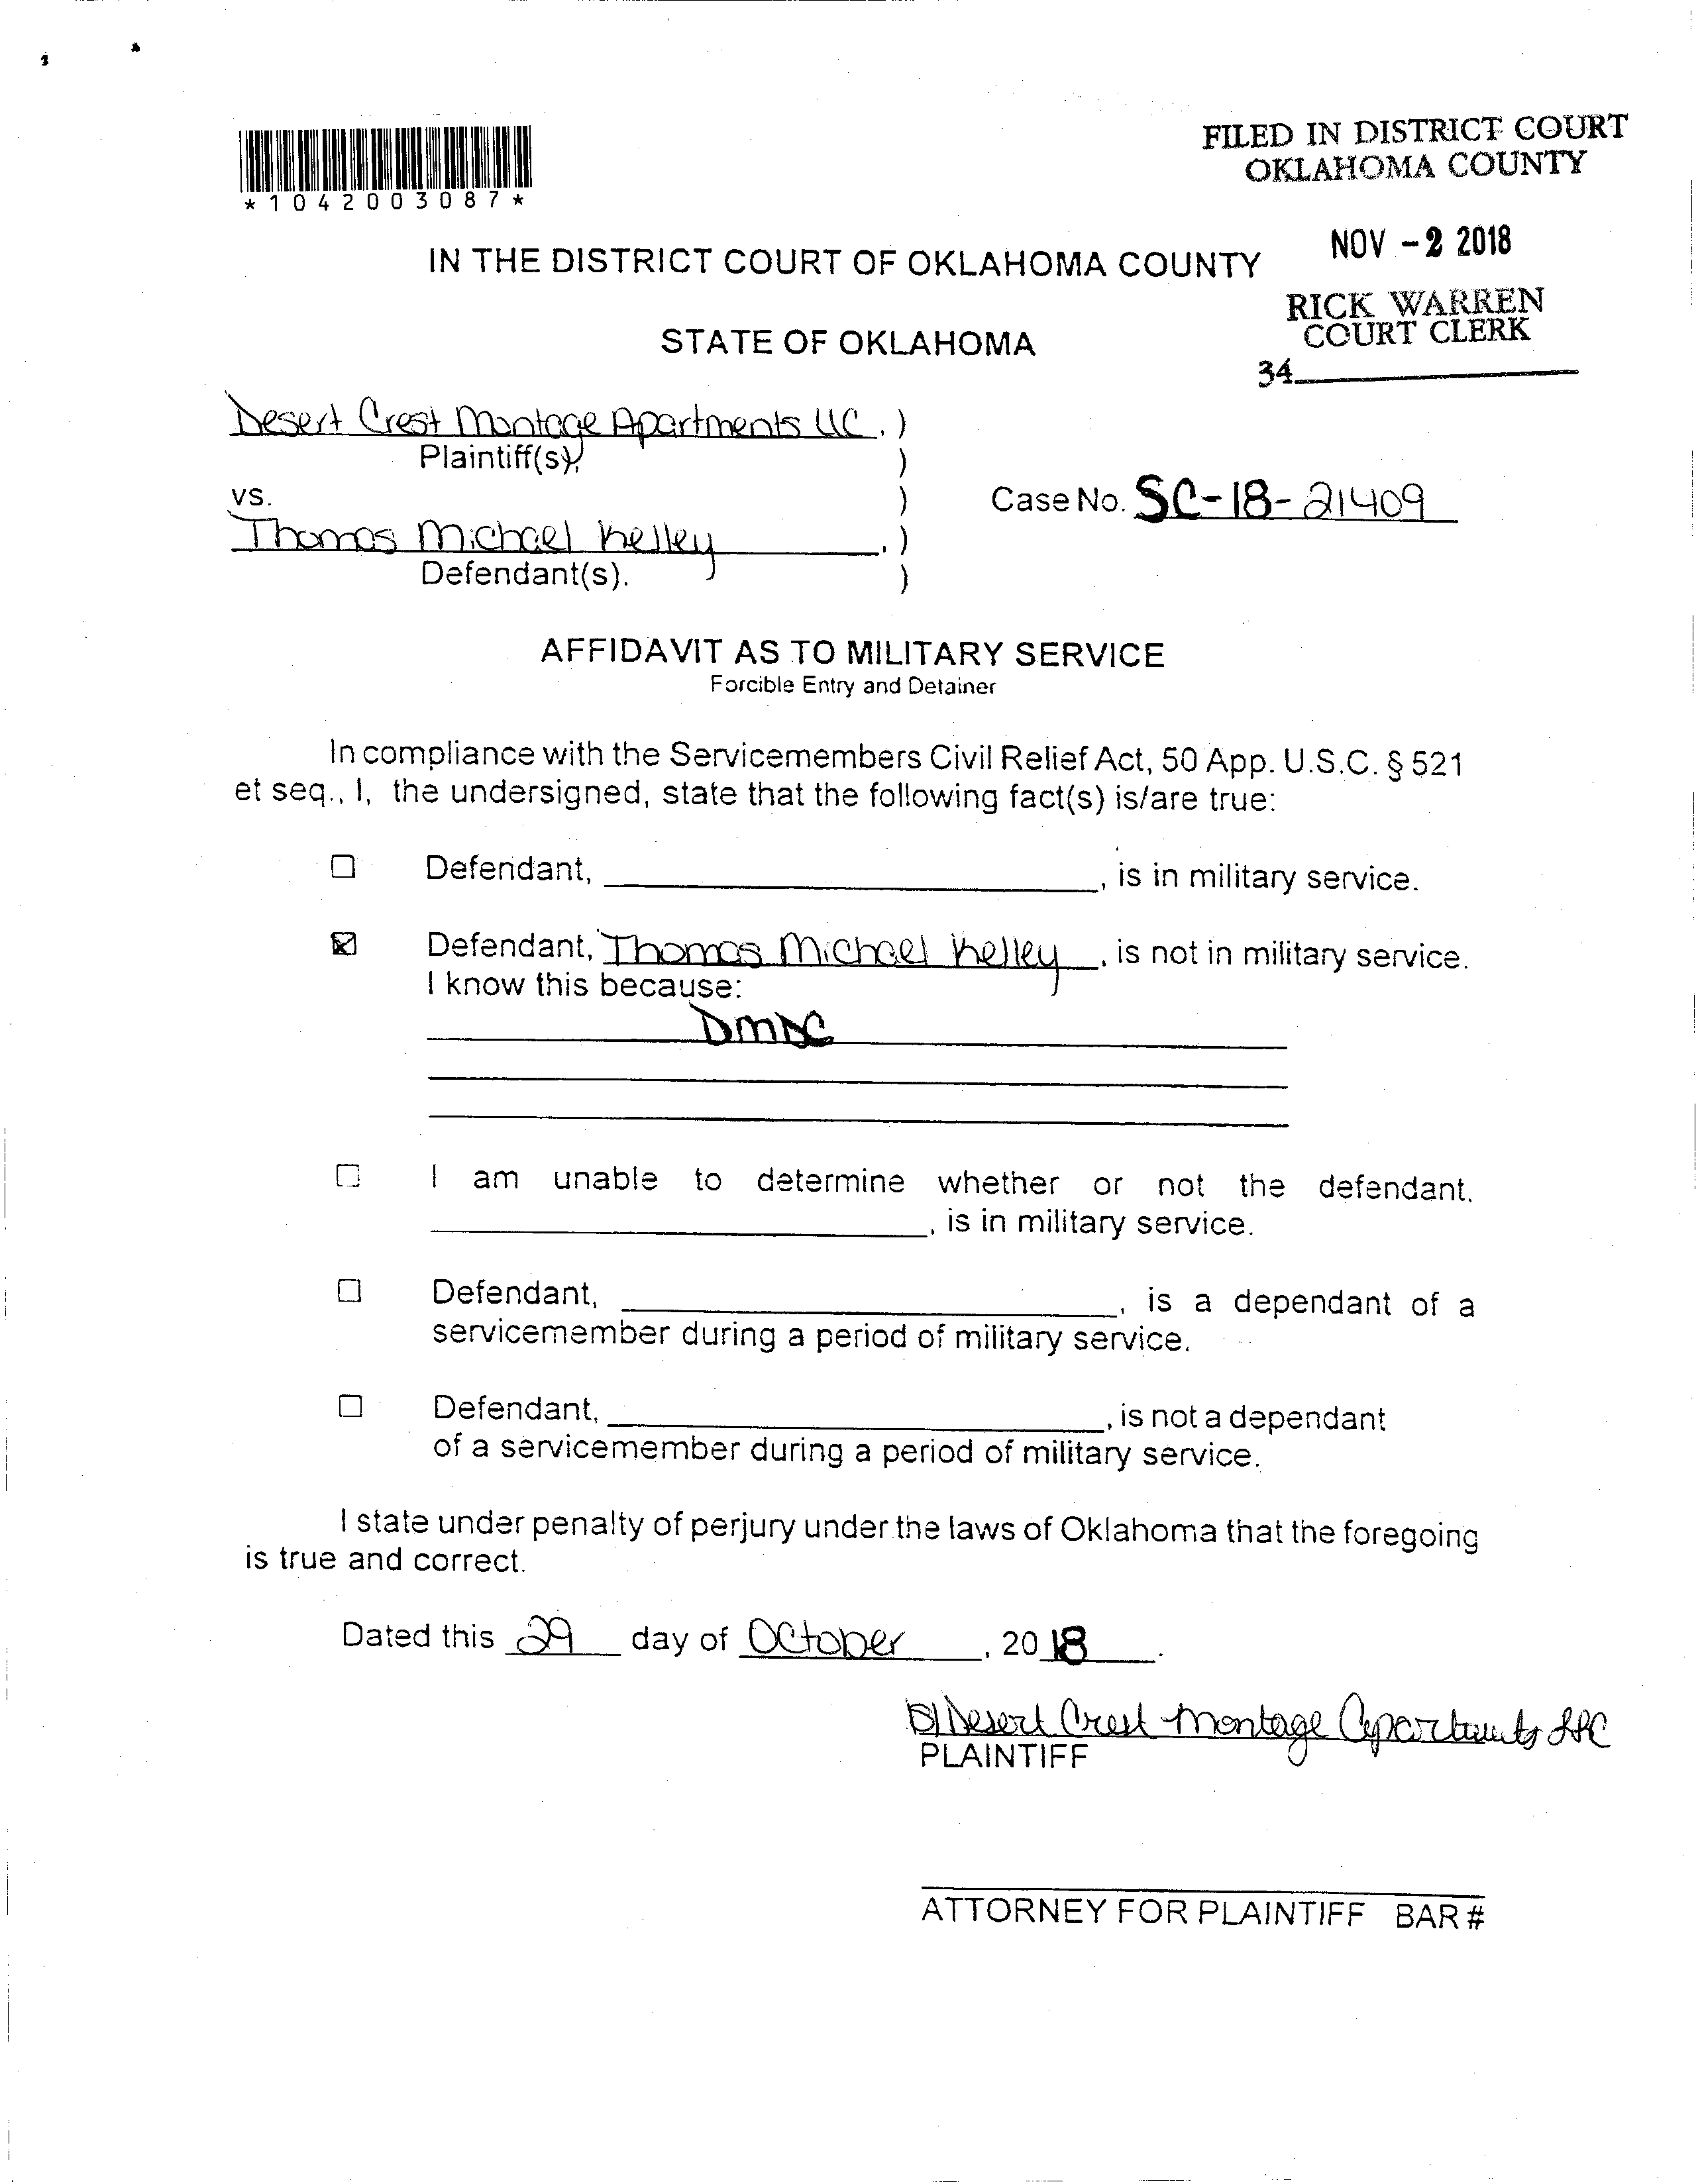 FILED IN DISTRICT COURT
OKLAHOMA COUNTY
*1042003087*
NOV -2 2018
IN THE DISTRICT COURT OF OKLAHOMA COUNTY
RICK WARREN
COURT CLERK
STATE OF OKLAHOMA
34
Desert Crest Montage Apartments LLC, )
Plaintiff(s), )
vs. ) Case No. SC-18-21409
Thomas Michael Kelley, )
Defendant(s). )
AFFIDAVIT AS TO MILITARY SERVICE
Forcible Entry and Detainer
In compliance with the Servicemembers Civil Relief Act, 50 App. U.S.C. § 521
et seq., I, the undersigned, state that the following fact(s) is/are true:
☐ Defendant, , is in military service.
☒ Defendant, Thomas Michael Kelley, is not in military service.
I know this because:
DMDC
☐ I am unable to determine whether or not the defendant,
, is in military service.
☐ Defendant, , is a dependant of a
servicemember during a period of military service.
☐ Defendant, , is not a dependant
of a servicemember during a period of military service.
I state under penalty of perjury under the laws of Oklahoma that the foregoing
is true and correct.
Dated this 29 day of October, 2018.
Desert Crest Montage Apartments LLC
PLAINTIFF
ATTORNEY FOR PLAINTIFF BAR #